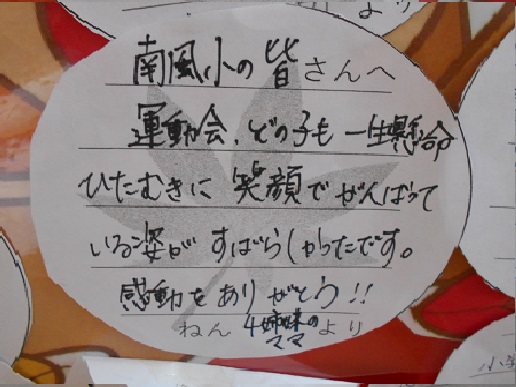 より
南風小の皆さんへ
運動会、どの子も一生懸命
ひたむきに笑顔でがんばって
いる姿がすばらしかったです。
感動をありがとう!!
ねん 4姉妹のママより
小学